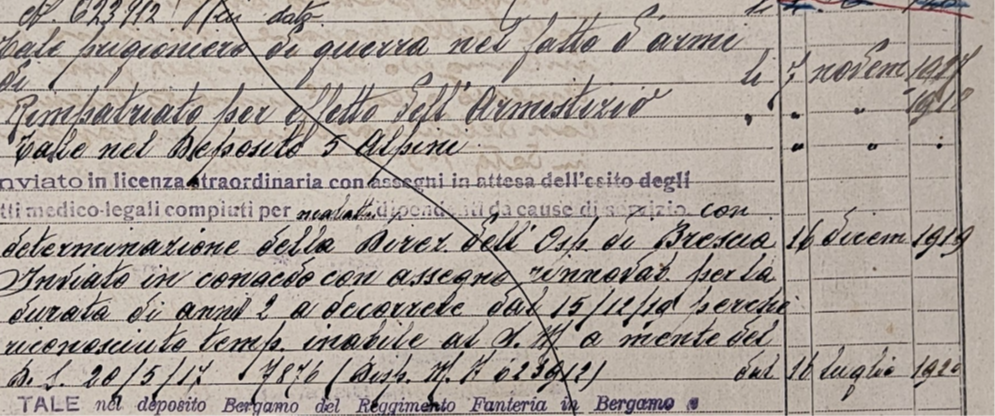 N. 623912 in data
Tale prigioniero di guerra nel fatto d'armi
di li 7 novem 1917
Rimpatriato per effetto dell'Armistizio " " 1918
Tale nel Deposito 5 Alpini " " "
nviato in licenza straordinaria con assegni in attesa dell'esito degli
tti medico-legali compiuti per malatt. dipendenti da cause di servizio. con
determinazione della Direz. dell'Osp. di Brescia 16 dicem 1919
Inviato in congedo con assegno rinnovab. per la
durata di anni 2 a decorrere dal 15/12/19 perchè
riconosciuto temp. inabile al S. M. a mente del
D. L. 20/5/17 N 876 (Disp. M. 623912) dal 16 Luglio 1920
TALE nel deposito Bergamo del Reggimento Fanteria in Bergamo